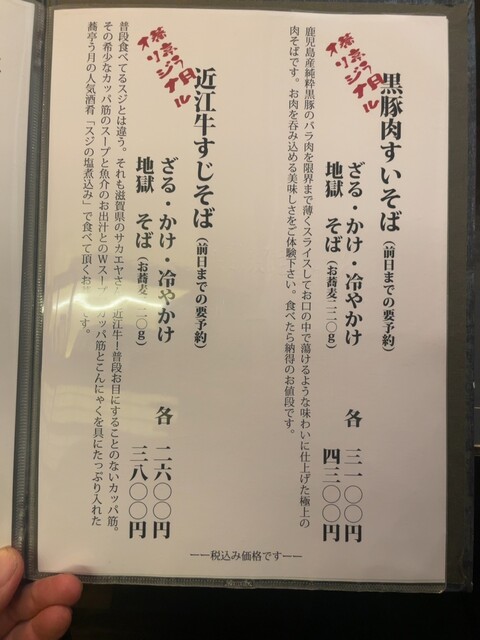 蕎亭う月
オリジナル
黒豚肉すいそば（前日までの要予約）
ざる・かけ・冷やかけ 各 三一〇〇円
地獄 そば（お蕎麦二二〇g） 四三〇〇円
鹿児島産純粋黒豚のバラ肉を限界まで薄くスライスしてお口の中で蕩けるような味わいに仕上げた極上の
肉そばです。お肉を呑み込める美味しさをご体験下さい。食べたら納得のお値段です。
オリジナル
近江牛すじそば（前日までの要予約）
ざる・かけ・冷やかけ 各 二六〇〇円
地獄 そば（お蕎麦二二〇g） 三八〇〇円
普段食べてるスジとは違う。それも滋賀県のサカエヤさ 近江牛！普段お目にすることのないカッパ筋。
その希少なカッパ筋のスープと魚介のお出汁とのWスー カッパ筋とこんにゃくを具にたっぷり入れた
蕎亭う月の人気酒肴「スジの塩煮込み」で食べて頂くお す。
ーー税込み価格ですーー